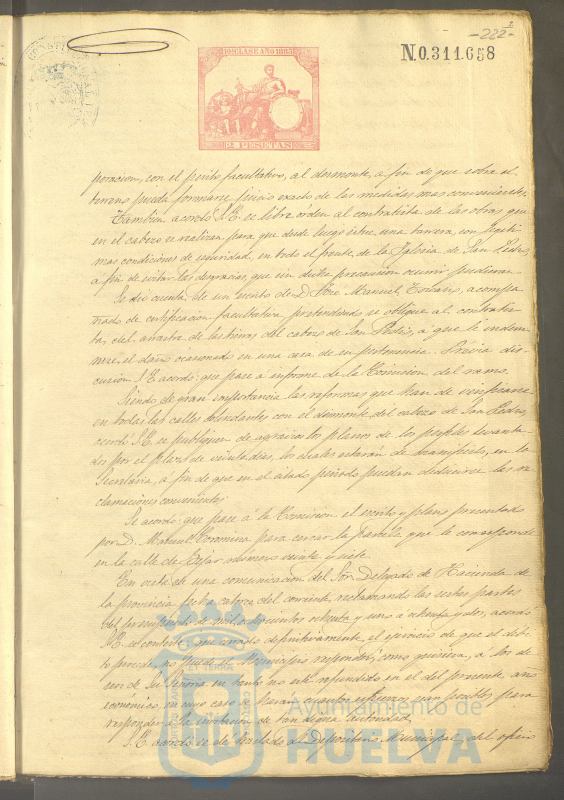 -222-
N.0.311.658
10ª CLASE AÑO 1885
2 PESETAS
poracion, con el perito facultativo, al desmonte, a fin de que sobre el
terreno pueda formarse juicio exacto de las medidas mas convenientes.
Tambien acordó S.E. se libre órden al contratista de las obras que
en el cabezo se realizan para que desde luego una barrera, con legiti-
mas condiciones de seguridad, en todo el frente de la Iglesia de San Pedro,
á fin de evitar las desgracias, que sin dicha precaucion ocurrir pudieran.
Se dió cuenta de un escrito de D. José Manuel acompa-
ñado de certificacion facultativa pretendiendo se obligue al contratis-
ta del arrastre de las tierras del cabezo de San Pedro, a que le indem-
nice el daño ocasionado en una casa de su pertenencia. Previa dis-
cusion S.E. acordó: que pase a informe de la Comision del ramo.
Siendo de gran importancia las reformas que han de
en todas las calles colindantes con el desmonte del cabezo de San Pedro,
acordó S.E. se publiquen de agravios los planos de los perfiles levanta-
dos por el plazo de veinte dias, los cuales estarán de manifiesto, en la
Secretaria, a fin de que en el citado periodo puedan deducirse las re-
clamaciones convenientes.
Se acordó: que pase á la Comision el escrito y plano presentado
por D. Manuel para cercar la parcela que le corresponde
en la calle de Bejar número veinte y siete.
En vista de una comunicacion del Sor. Delegado de Hacienda de
la provincia fecha catorce del corriente, reclamando las sestas partes
del presupuesto de mil ochocientos ochenta y uno á ochenta y dos, acordó
S.E. se conteste que cerrado definitivamente, el ejercicio de que el débi-
to procede, no puede el Municipio responder, como quisiera, a los de-
seos de Su Señoria en tanto no esté refundido en el del presente año
económico, en cuyo caso se harán cuantos esfuerzos sean posibles para
responder a la invitacion de tan digna autoridad.
S.E. acordó se dé traslado al Depositario Municipal, del oficio
Ayuntamiento de
HUELVA